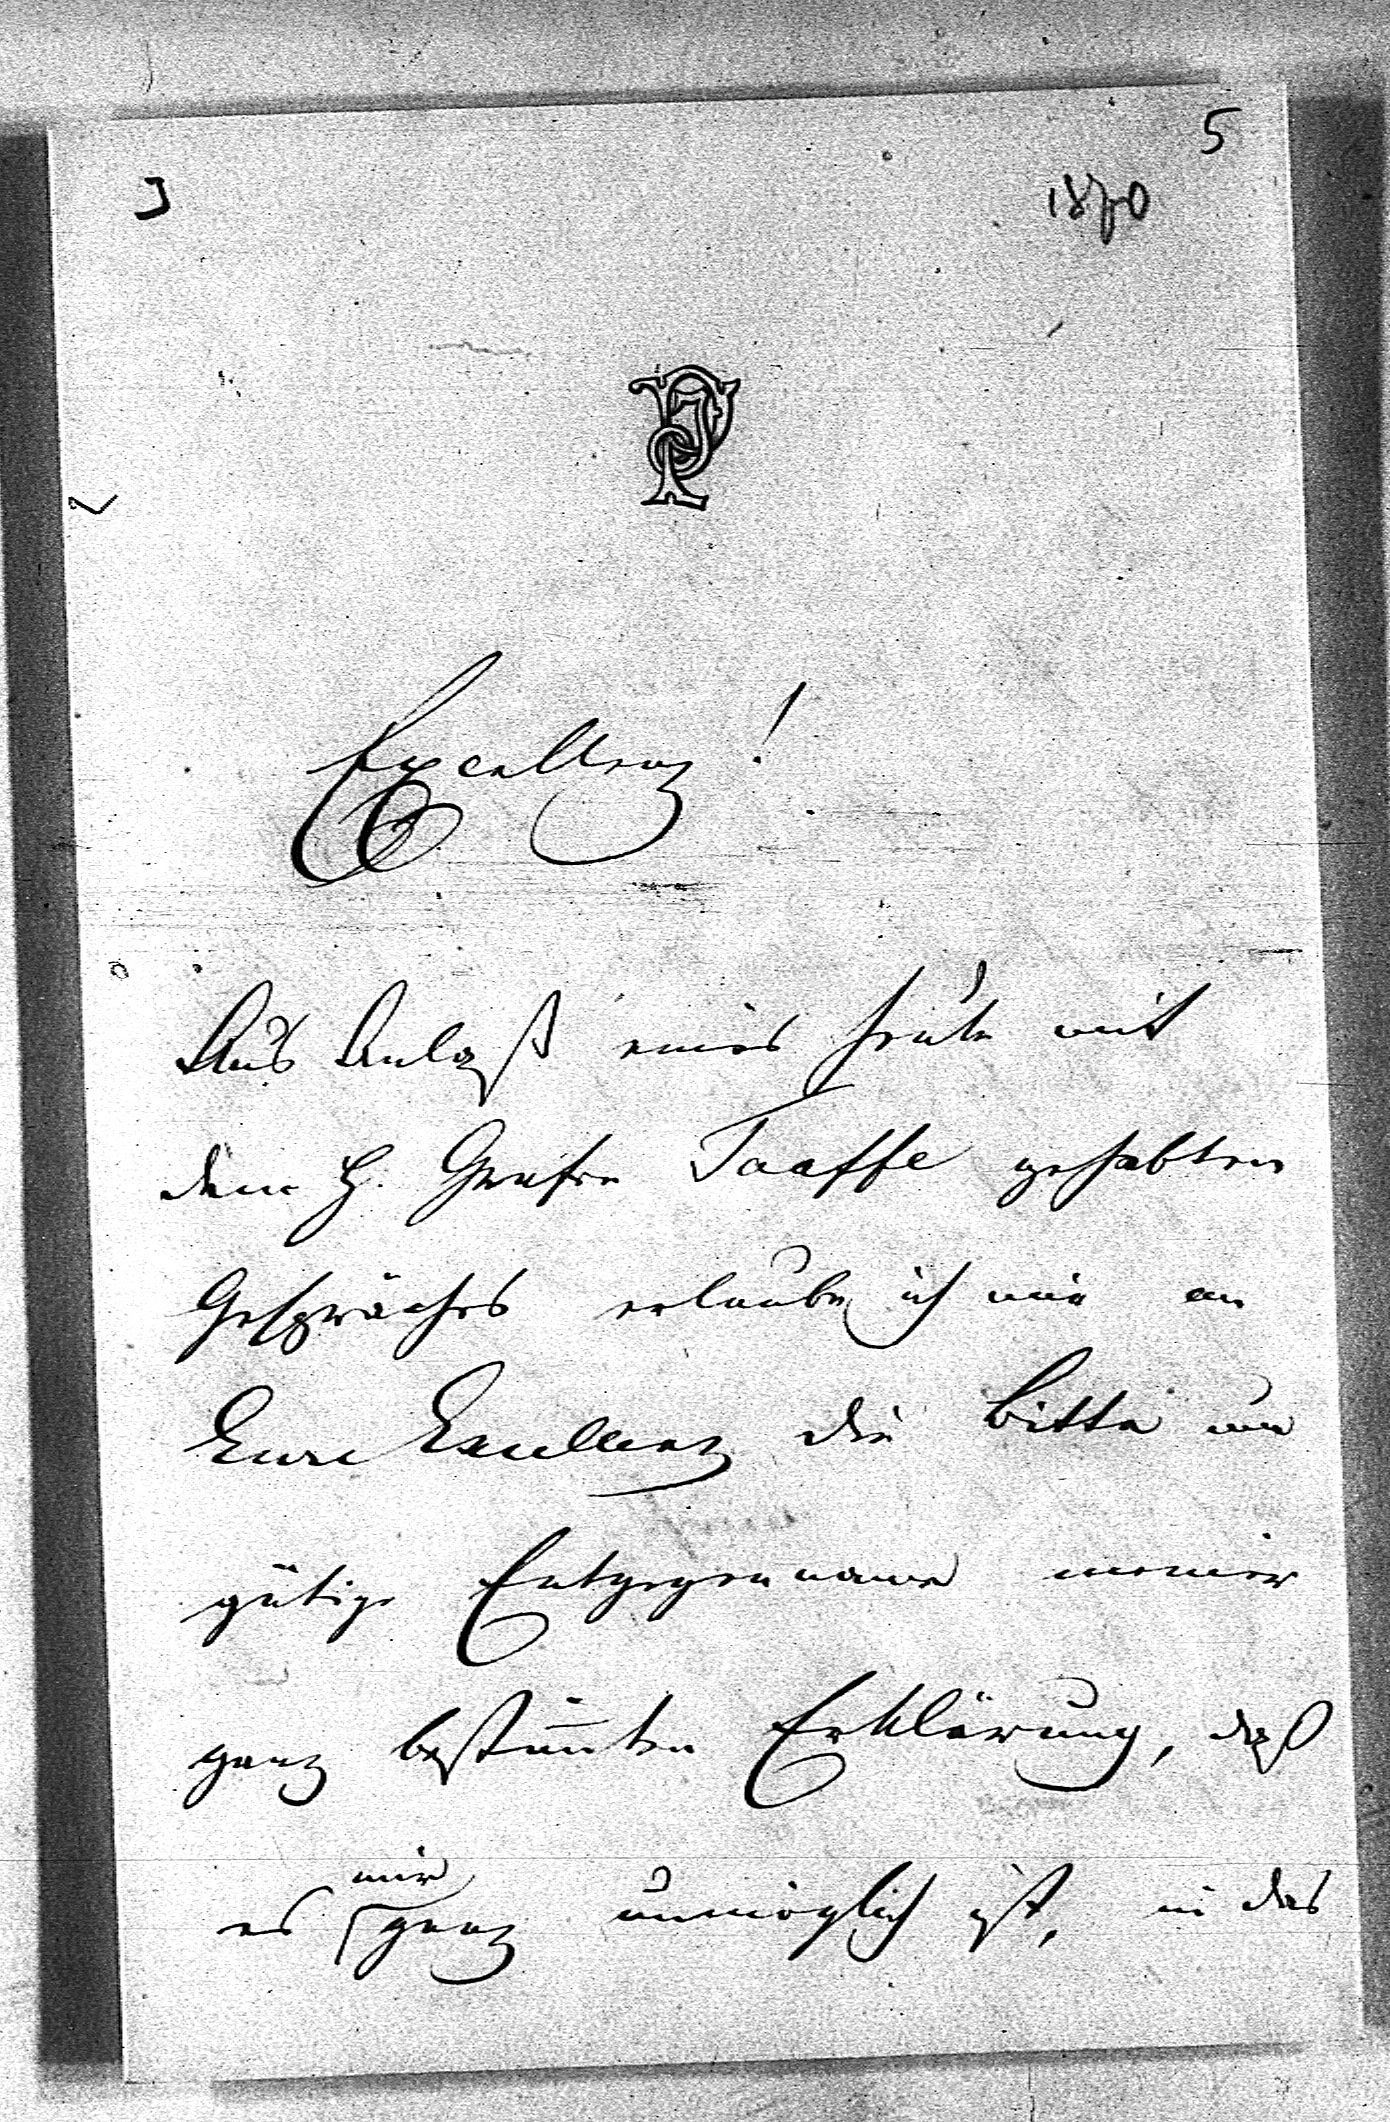 5
1870
Excellenz!
Aus Anlaß eines heute mit
dem H. Grafen Taaffe gehabten
Gespräches erlaube ich mir an
Eure Excellenz die Bitte um
gütige Entgegenname meiner
ganz bestim̅ten Erklärung, daß
mir
es ganz unmöglich ist, in das